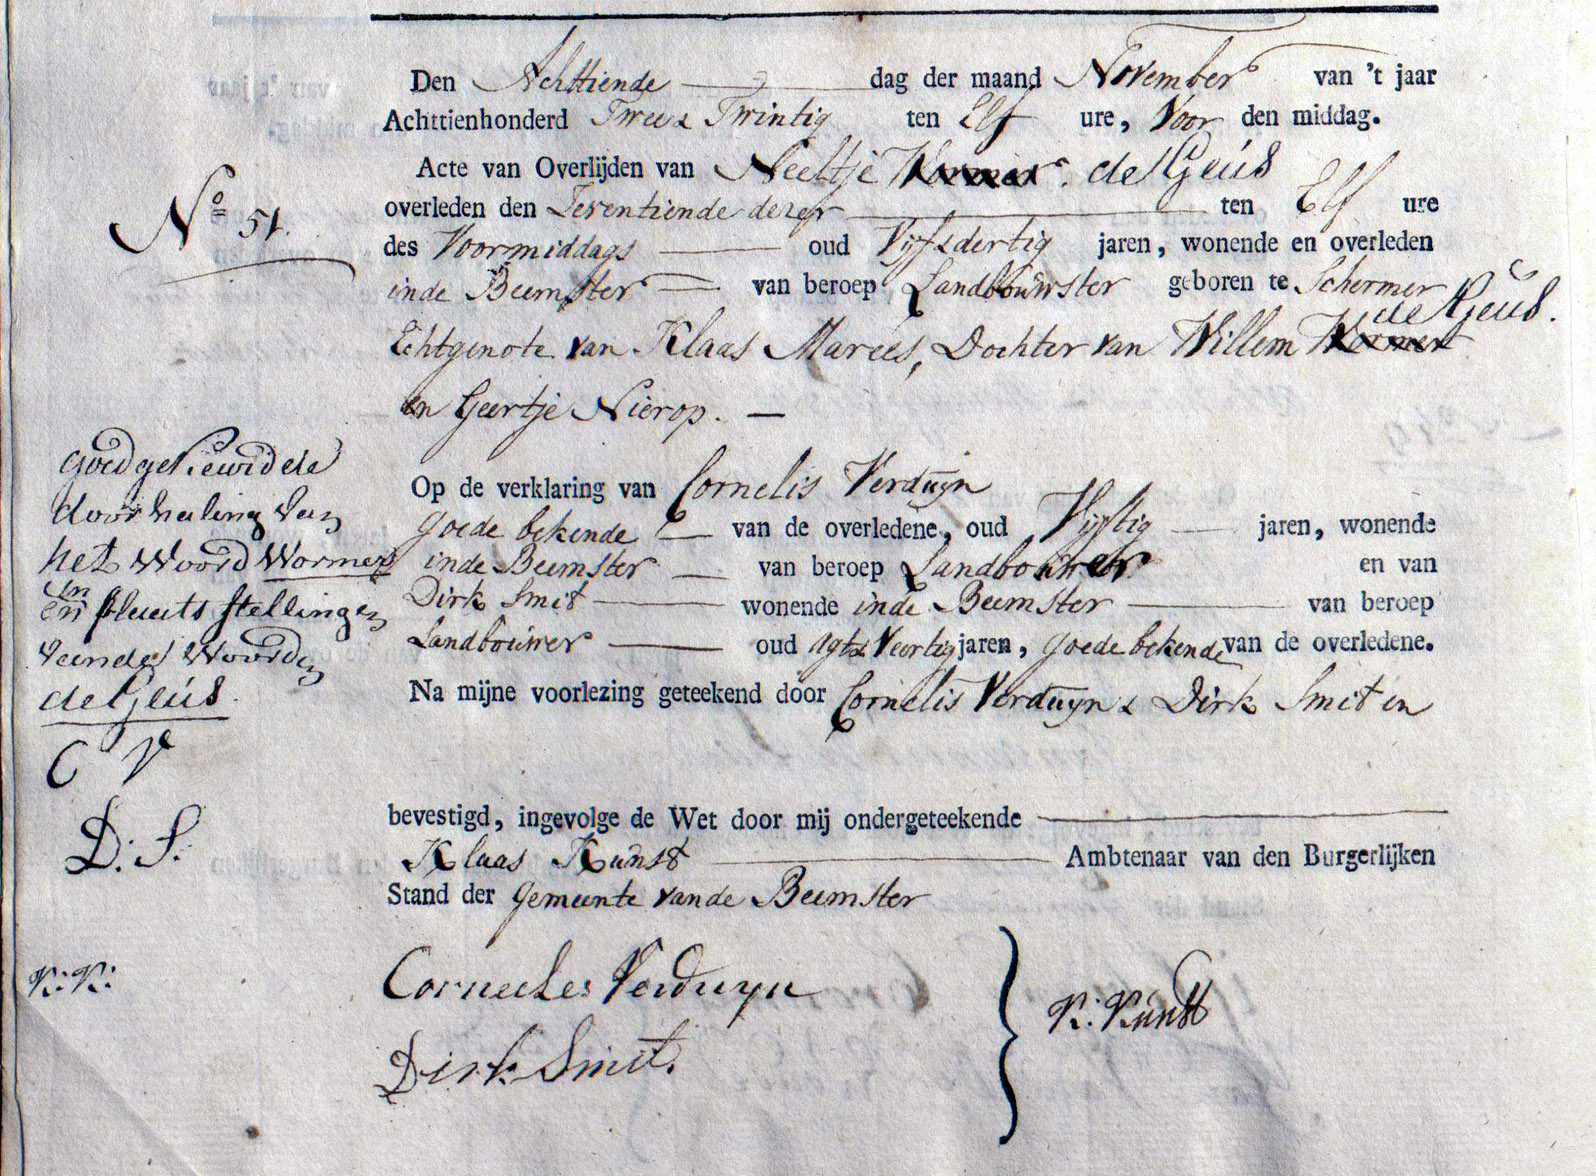 Den Achttiende dag der maand November van 't jaar
Achttienhonderd Twee & Twintig ten Elf ure, Voor den middag.
Acte van Overlijden van Neeltje Wormer de Geus
No 51.
overleden den Zeventiende dezer ten Elf ure
des Voormiddags oud Vijf & dertig jaren, wonende en overleden
inde Beemster van beroep Landbouwster geboren te Schermer
de Geus.
Echtgenote van Klaas Marees, Dochter van Willem Wormer
en Geertje Nierop.
Op de verklaring van Cornelis Verduijn
goede bekende van de overledene, oud Vijftig jaren, wonende
inde Beemster van beroep Landbouwer en van
Dirk Smit wonende inde Beemster van beroep
Landbouwer oud agt & Veertig jaren, goede bekende van de overledene.
Na mijne voorlezing geteekend door Cornelis Verduijn & Dirk Smit en
goedgekeurd de
doorhaling van
het Woord Wormer
en plaats stellingen
van de Woorden
de Geus.
C V
D. S.
K. K.
bevestigd, ingevolge de Wet door mij ondergeteekende
Klaas Kunst Ambtenaar van den Burgerlijken
Stand der Gemeente van de Beemster
Cornelles Verduyn
Dirk Smit.
K. Kunst